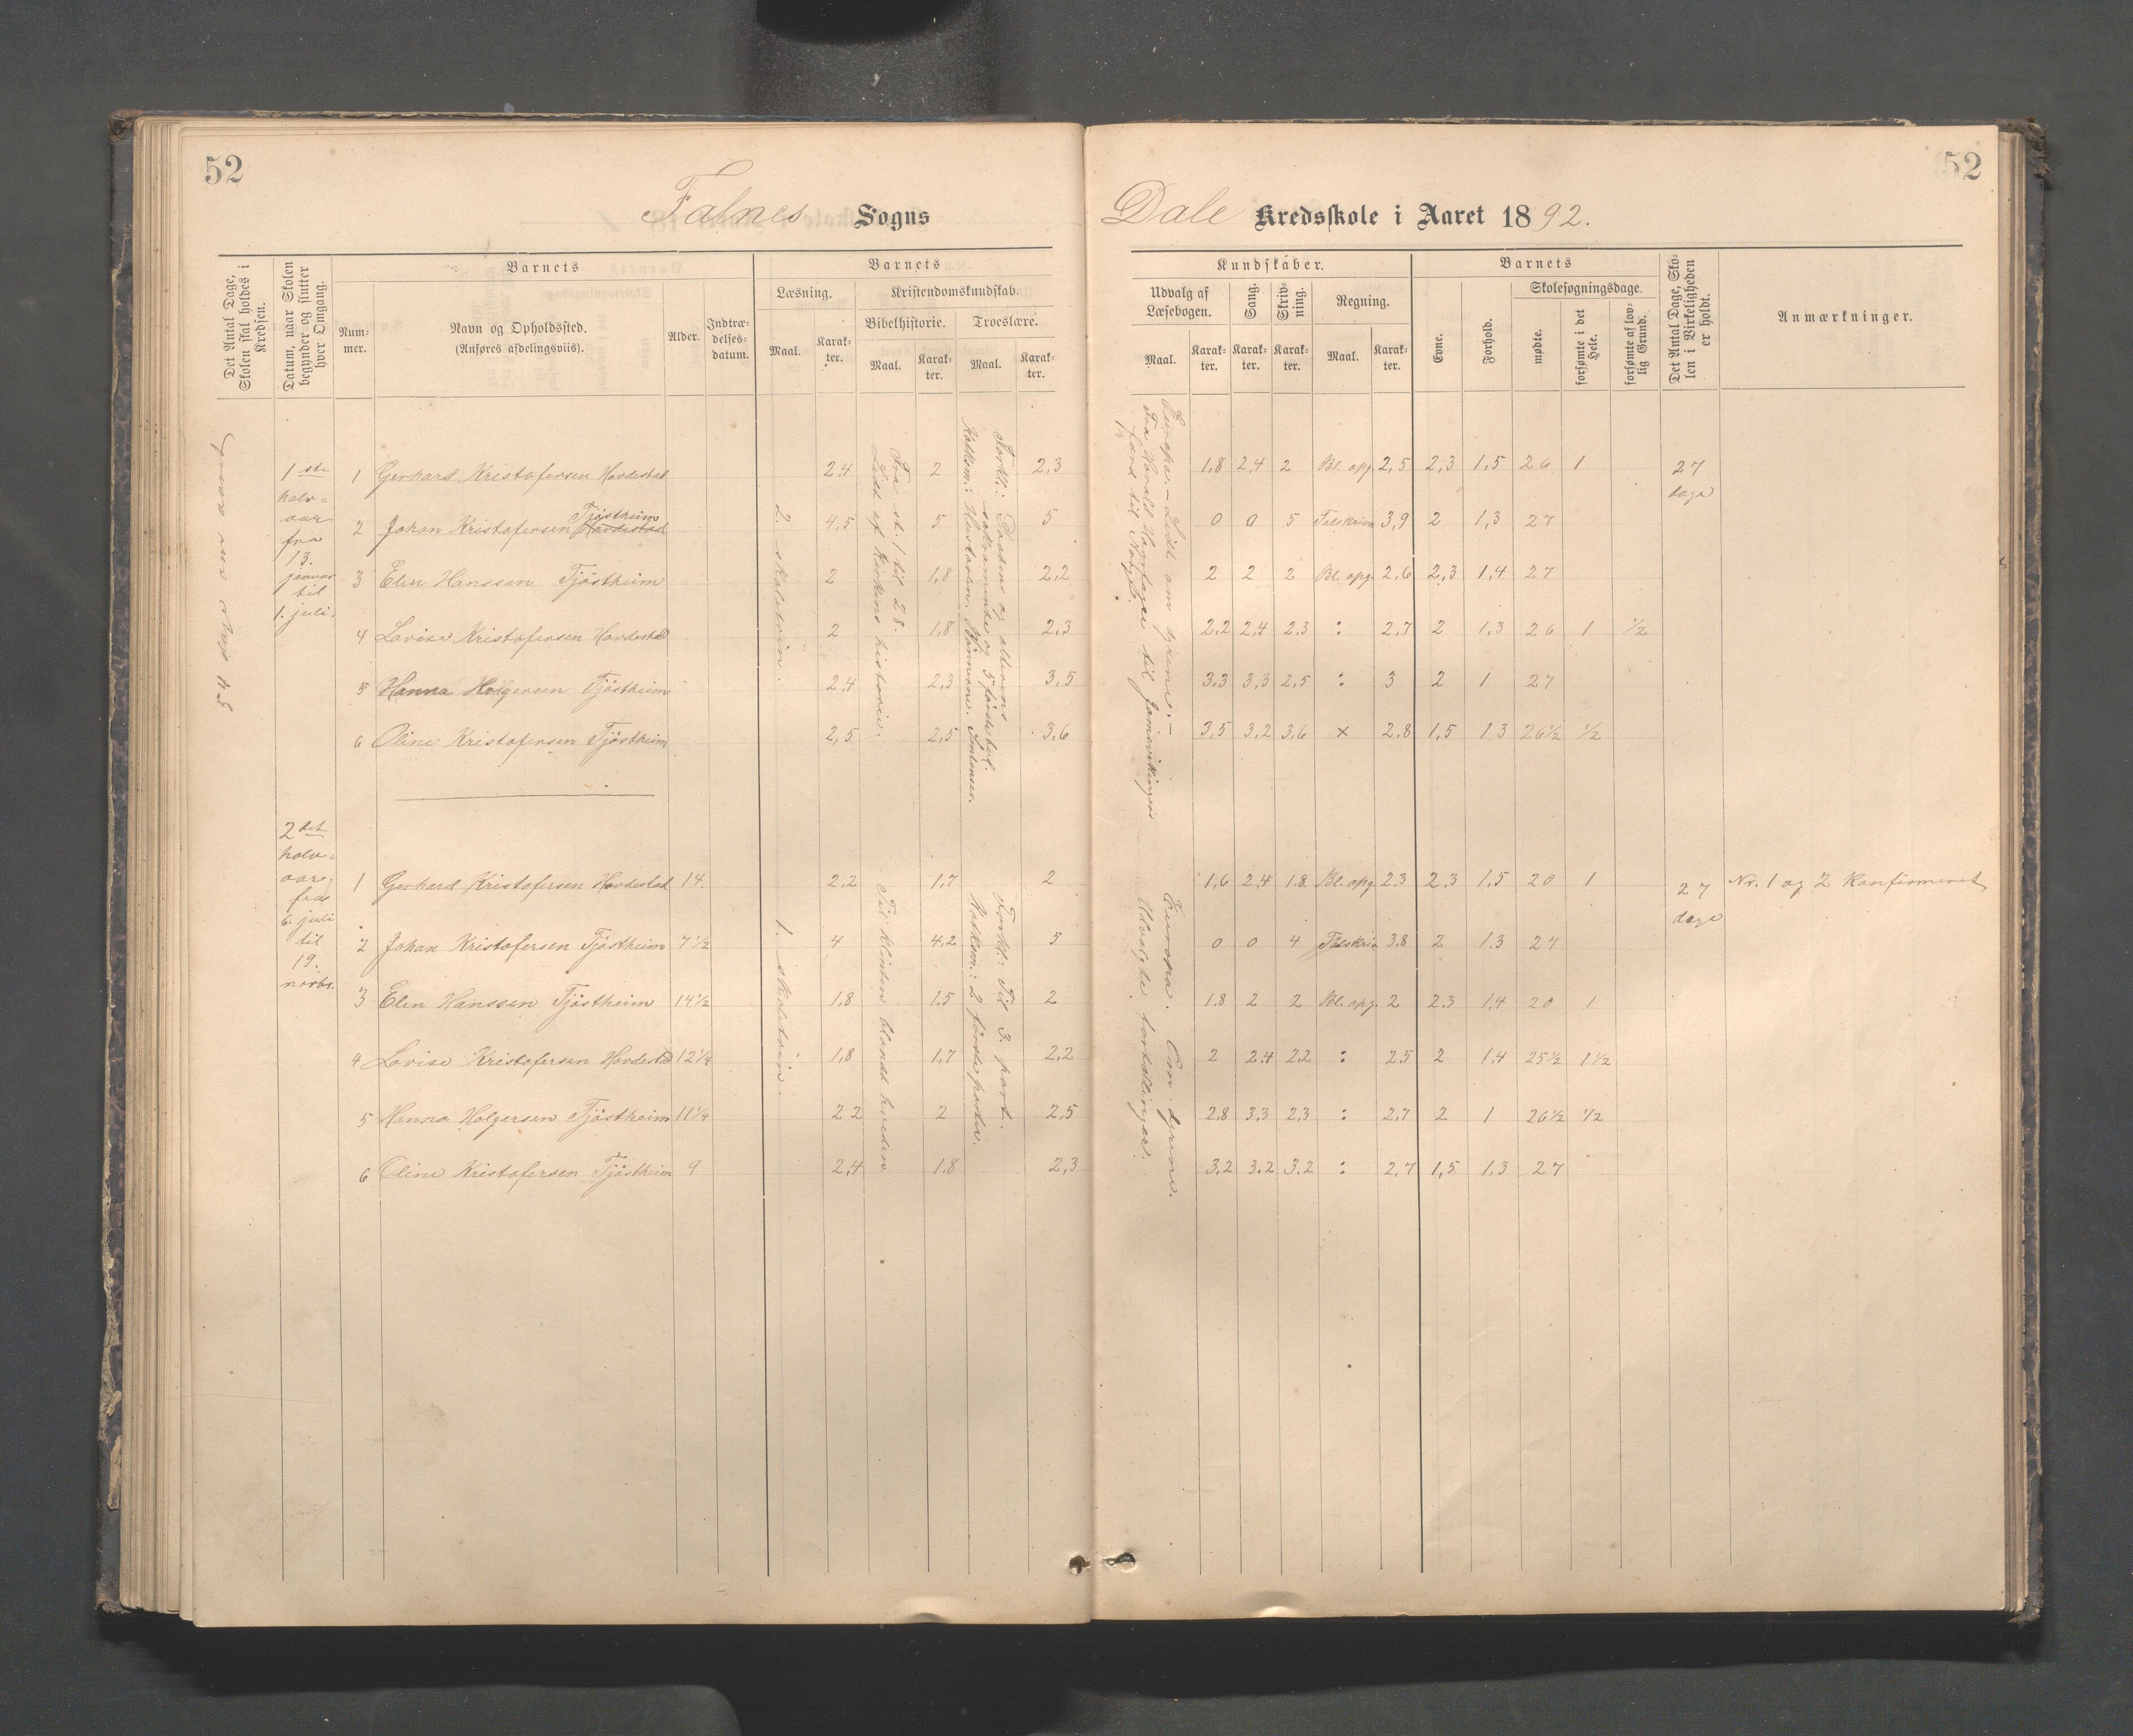 52
52
Falnes Sogns
Dale Kredsskole i Aaret 1892.
Det Antal Dage, Skolen skal holdes i Kredsen.
Datum, naar Skolen begynder og slutter hver Omgang.
Barnets
Num-
mer.
Navn og Opholdssted.
(Anføres afdelingsviis).
Alder.
Indtræ-
delses-
datum.
Barnets
Læsning.
Maal.
Karak-
ter.
Kristendomskundskab.
Bibelhistorie.
Troeslære.
Maal.
Karak-
ter.
Maal.
Karak-
ter.
Kundskaber.
Udvalg af
Læsebogen.
Maal.
Karak-
ter.
Sang.
Karak-
ter.
Skriv-
ning.
Karak-
ter.
Regning.
Maal.
Karak-
ter.
Barnets
Evne.
Forhold.
Skolesøgningsdage.
mødte.
forsømte i det Hele.
forsømte af lov-
lig Grund.
Det Antal Dage, Sko-
len i Virkeligheden
er holdt.
Anmærkninger.
1ste
halv-
aar
fra
13.
januar
til
1. juli.
2. skoletrin.
Fra st. 1 til 28.
Lidt af kirkens historie.
Forkl.: Daaben og alterens
sakramente og 5 første bud.
Europa. - Lidt om dyrene. -
Fra Harald Haarfager til Jomsvikingers
færd til Norge.
1 Gerhard Kristofersen Hovdestad 2,4 2 2,3 1,8 2,4 2 Bl. opg. 2,5 2,3 1,5 26 1
27
dage
2 Johan Kristofersen Hovdestad Tjöstheim 4,5 5 5 0 0 5 Talskrivn 3,9 2 1,3 27
3 Elen Hanssen Tjöstheim 2 1,8 2,2 2 2 2 Bl. opg. 2,6 2,3 1,4 27
4 Lovise Kristofersen Hovdestad 2 1,8 2,3 2,2 2,4 2,3 : 2,7 2 1,3 26 1 1/2
5 Hanna Holgersen Tjöstheim 2,4 2,3 3,5 3,3 3,3 2,5 : 3 2 1 27
6 Oline Kristofersen Tjöstheim 2,5 2,5 3,6 3,5 3,2 3,6 x 2,8 1,5 1 3 26 1/2 1/2
2det
halv-
aar
fra
6. juli
til
19.
novbr.
1. skoletrin.
Forkl.: Til 3. part.
Katkem.: 2 første parter.
Europa. Om dyrene.
Udvalgte fortællinger.
1 Gerhard Kristofersen Hovdestad 14. 2,2 1,7 2 1,6 2,4 1,8 Bl. opg. 2,3 2,3 1,5 20 1
27
dage
Nr. 1 og 2 konfirmeret
2 Johan Kristofersen Tjöstheim 7 1/2 4 4,2 5 0 0 4 Talskriv 3,8 2 1,3 27
3 Elen Hanssen Tjöstheim 14 1/2 1,8 1,5 2 1,8 2 2 Bl. opg. 2 2,3 1,4 20 1
4 Lovise Kristofersen Hovdestad 12 1/4 1,8 1,7 2,2 2 2,4 2,2 : 2,5 2 1,4 25 1/2 1 1/2
5 Hanna Holgersen Tjöstheim 11 1/4 2 2 2 2,5 2,8 3,3 2,3 : 2,7 2 1 26 1/2 1/2
6 Oline Kristofersen Tjöstheim 9 2,4 1,8 2,3 3,2 3,2 3,2 : 2,7 1,5 1,3 27